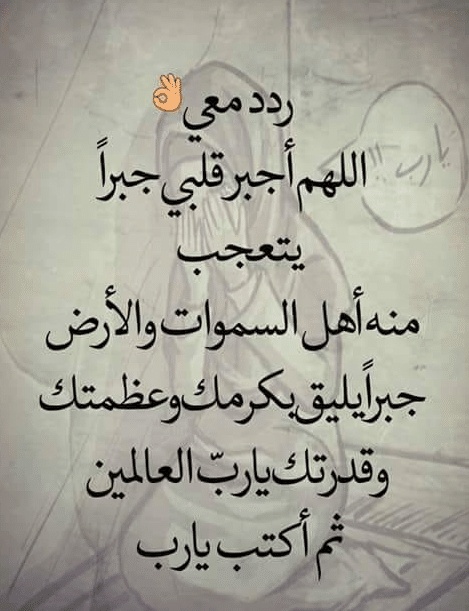 ردد معي👌
اللهم أجبر قلبي جبراً
يتعجب
منه أهل السموات والأرض
جبراً يليق بكرمك وعظمتك
وقدرتك يا ربّ العالمين
ثم أكتب يارب
يارب